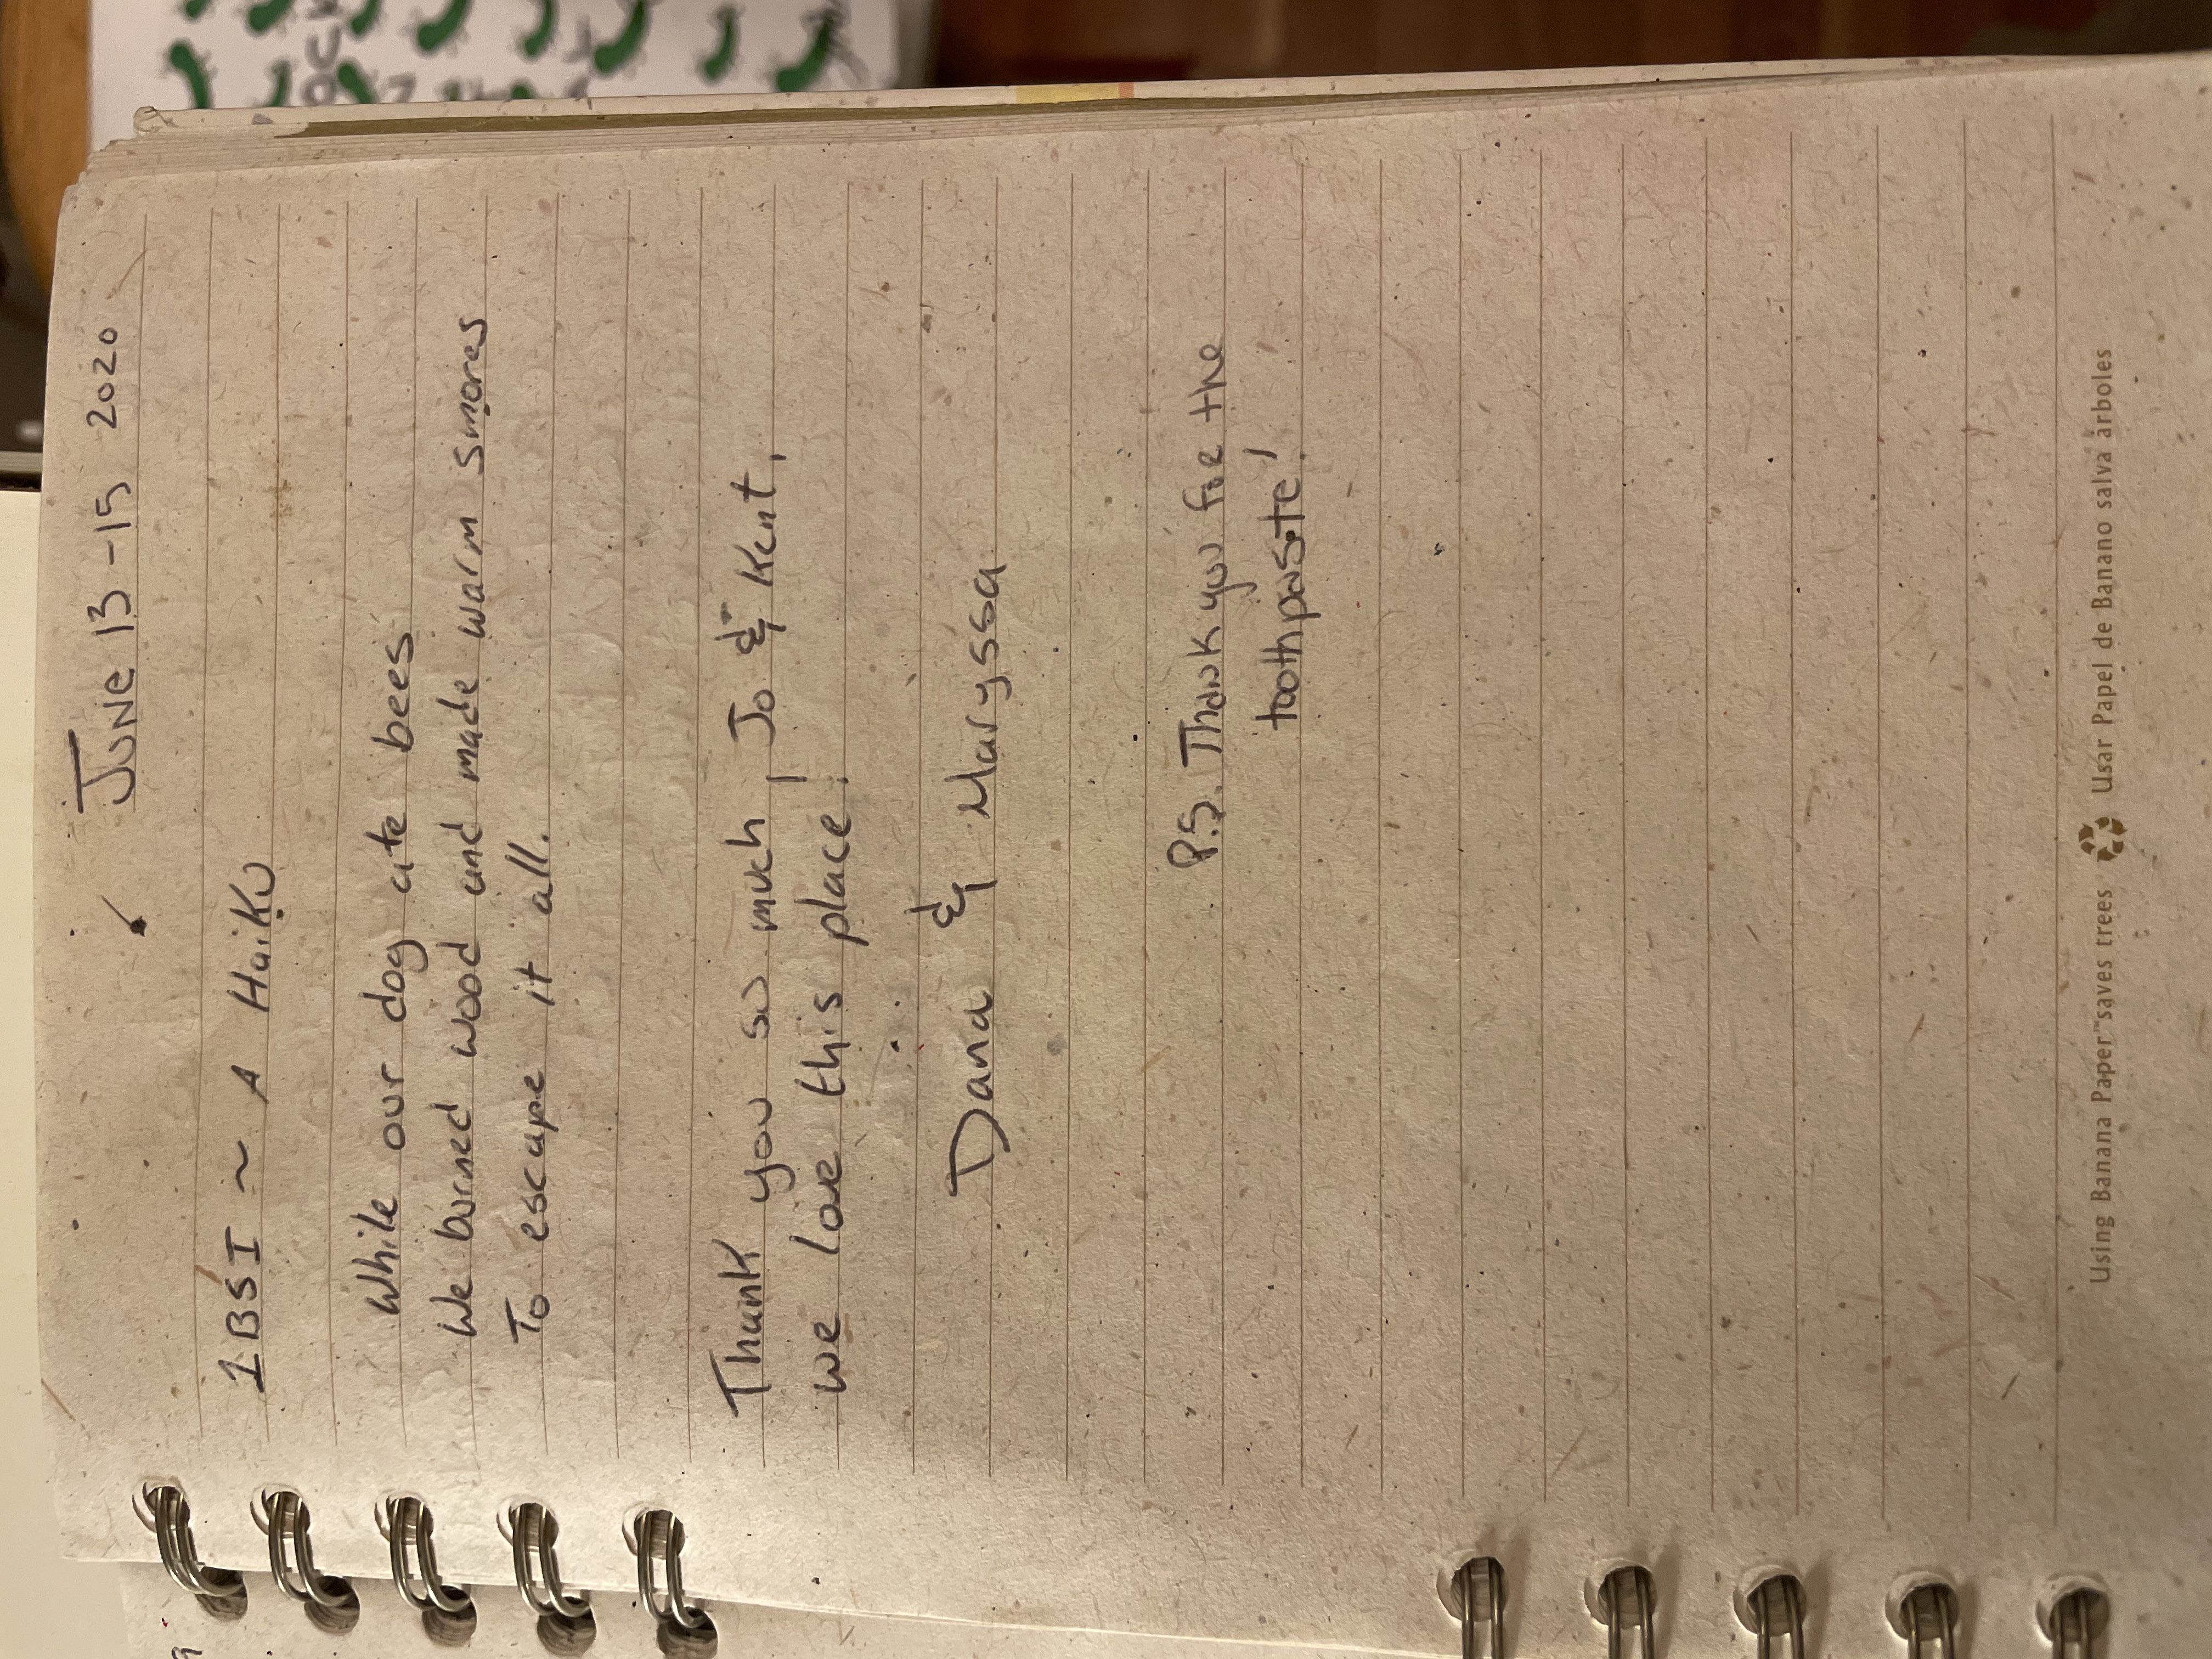 June 13-15 2020
1BSI ~ A Haiku
While our dog ate bees
We burned wood and made warm smores
To escape it all.
Thank you so much, Jo & Kent,
we love this place!
Dana & Maryssa
P.S. Thank you for the
toothpaste!
Using Banana Paper™ saves trees Usar Papel de Banano salva árboles